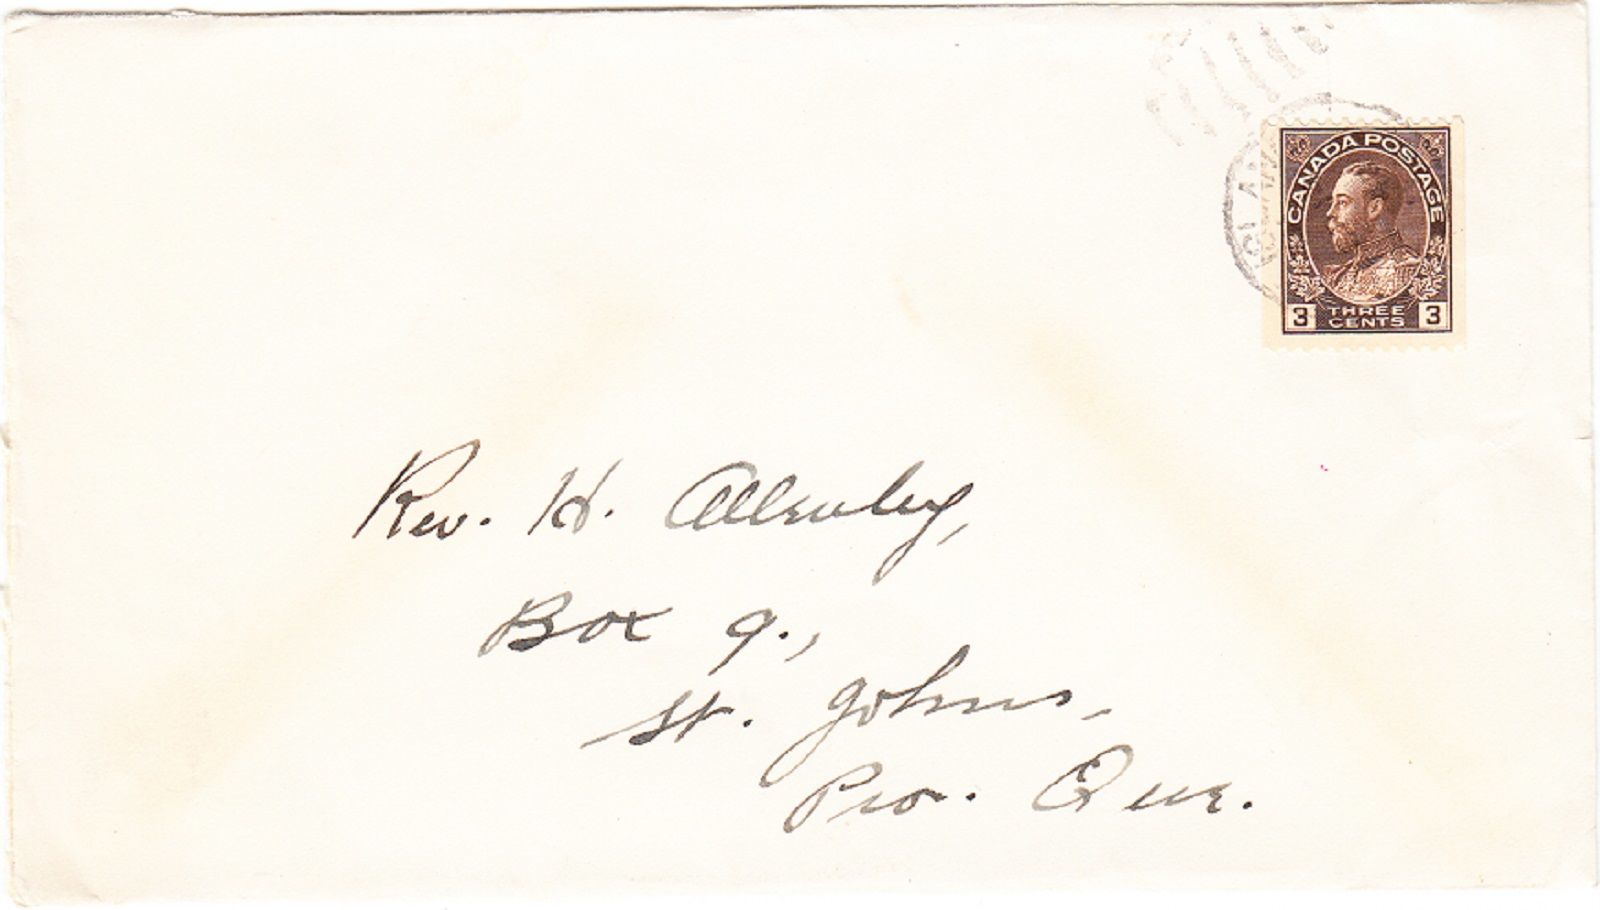 CANADA POSTAGE
3 THREE CENTS 3
Rev. H. Allenby,
Box 9.,
St. Johns,
Pro. Que.